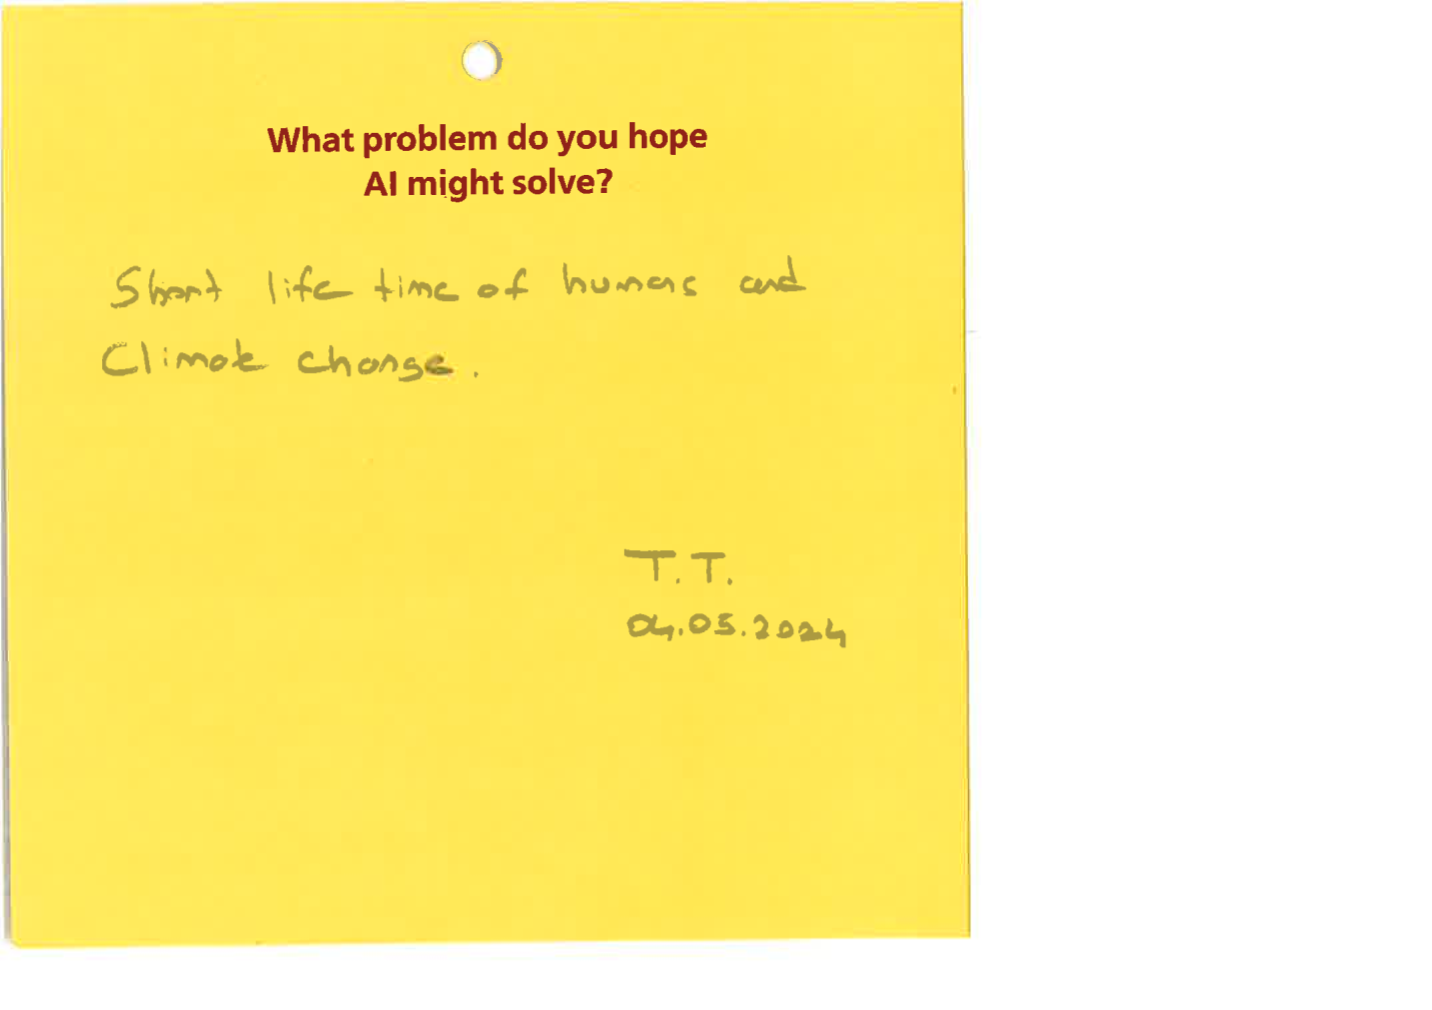 What problem do you hope
AI might solve?
Short life time of humans and
Climate change.
T.T.
04.05.2024